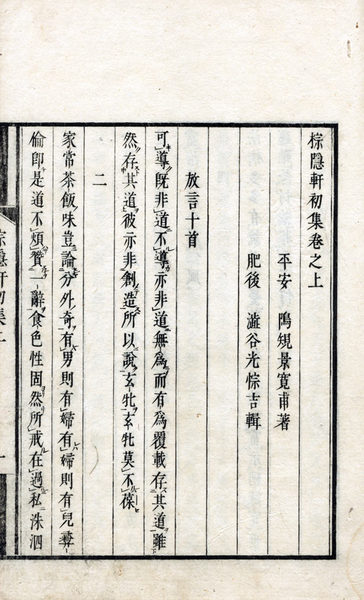 棕隱軒初集卷之上
平安 隝規景寬甫著
肥後 澁谷光悰吉輯
放言十首
可導既非道不導亦非道無為而有為覆載存其道雖
然存其道彼亦非創造所以說玄牝玄牝莫不葆
二
家常茶飯味豈論分外奇有男則有婦有婦則有兒彞
倫即是道不煩贊一辭食色性固然所戒在過私洙泗
棕隱軒初集